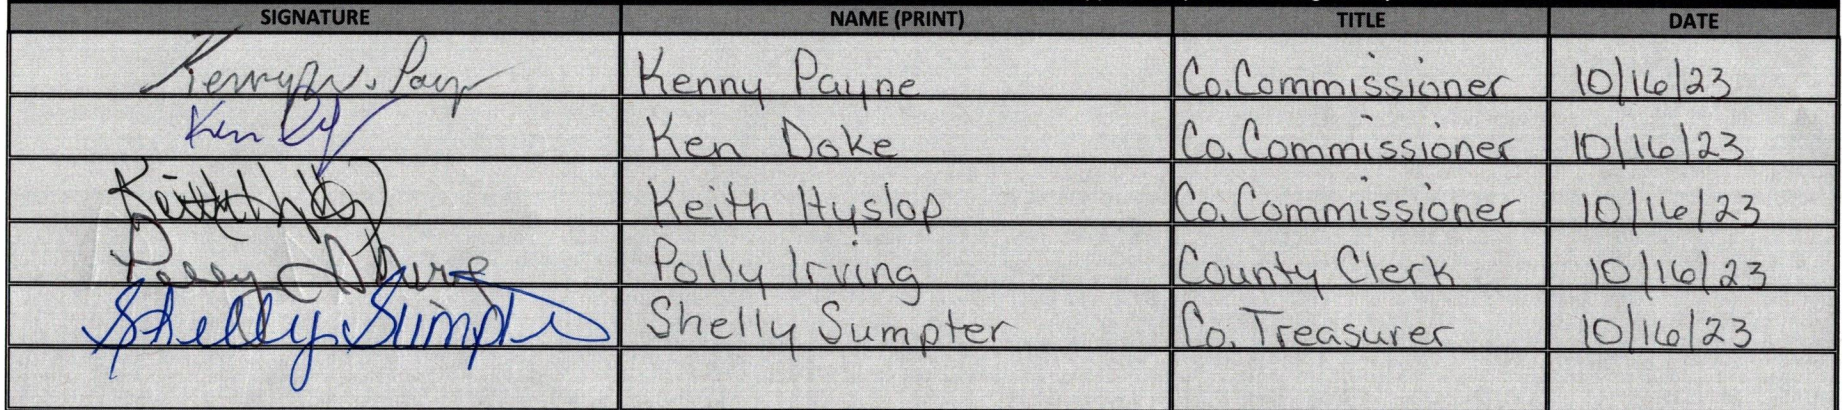 SIGNATURE NAME (PRINT) TITLE DATE
Kenny Payne Co. Commissioner 10/16/23
Ken Ken Doke Co. Commissioner 10/16/23
Keith Keith Hyslop Co. Commissioner 10/16/23
Polly Irving County Clerk 10/16/23
Shelly Sumpter Shelly Sumpter Co. Treasurer 10/16/23